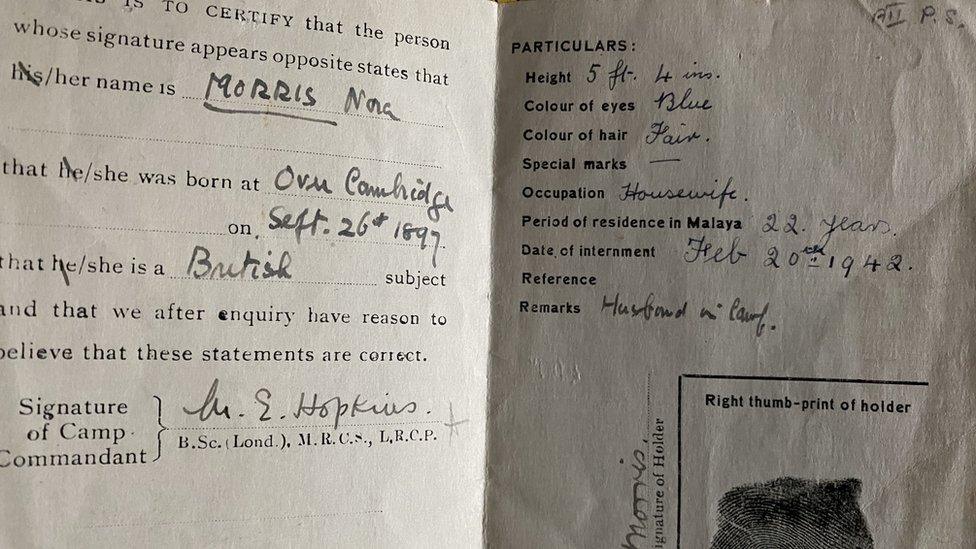 IS TO CERTIFY that the person
whose signature appears opposite states that
his/her name is MORRIS Nora
that he/she was born at Over Cambridge
on Sept. 26th 1897.
that he/she is a British subject
and that we after enquiry have reason to
believe that these statements are correct.
Signature
of Camp
Commandant
M. E. Hopkins.
B.Sc. (Lond.), M.R.C.S., L.R.C.P.
P. S.
PARTICULARS:
Height 5 ft. 4 ins.
Colour of eyes Blue
Colour of hair Fair.
Special marks —
Occupation Housewife.
Period of residence in Malaya 22 years.
Date of internment Feb 20th 1942.
Reference
Remarks Husband in Camp.
Morris.
Signature of Holder
Right thumb-print of holder